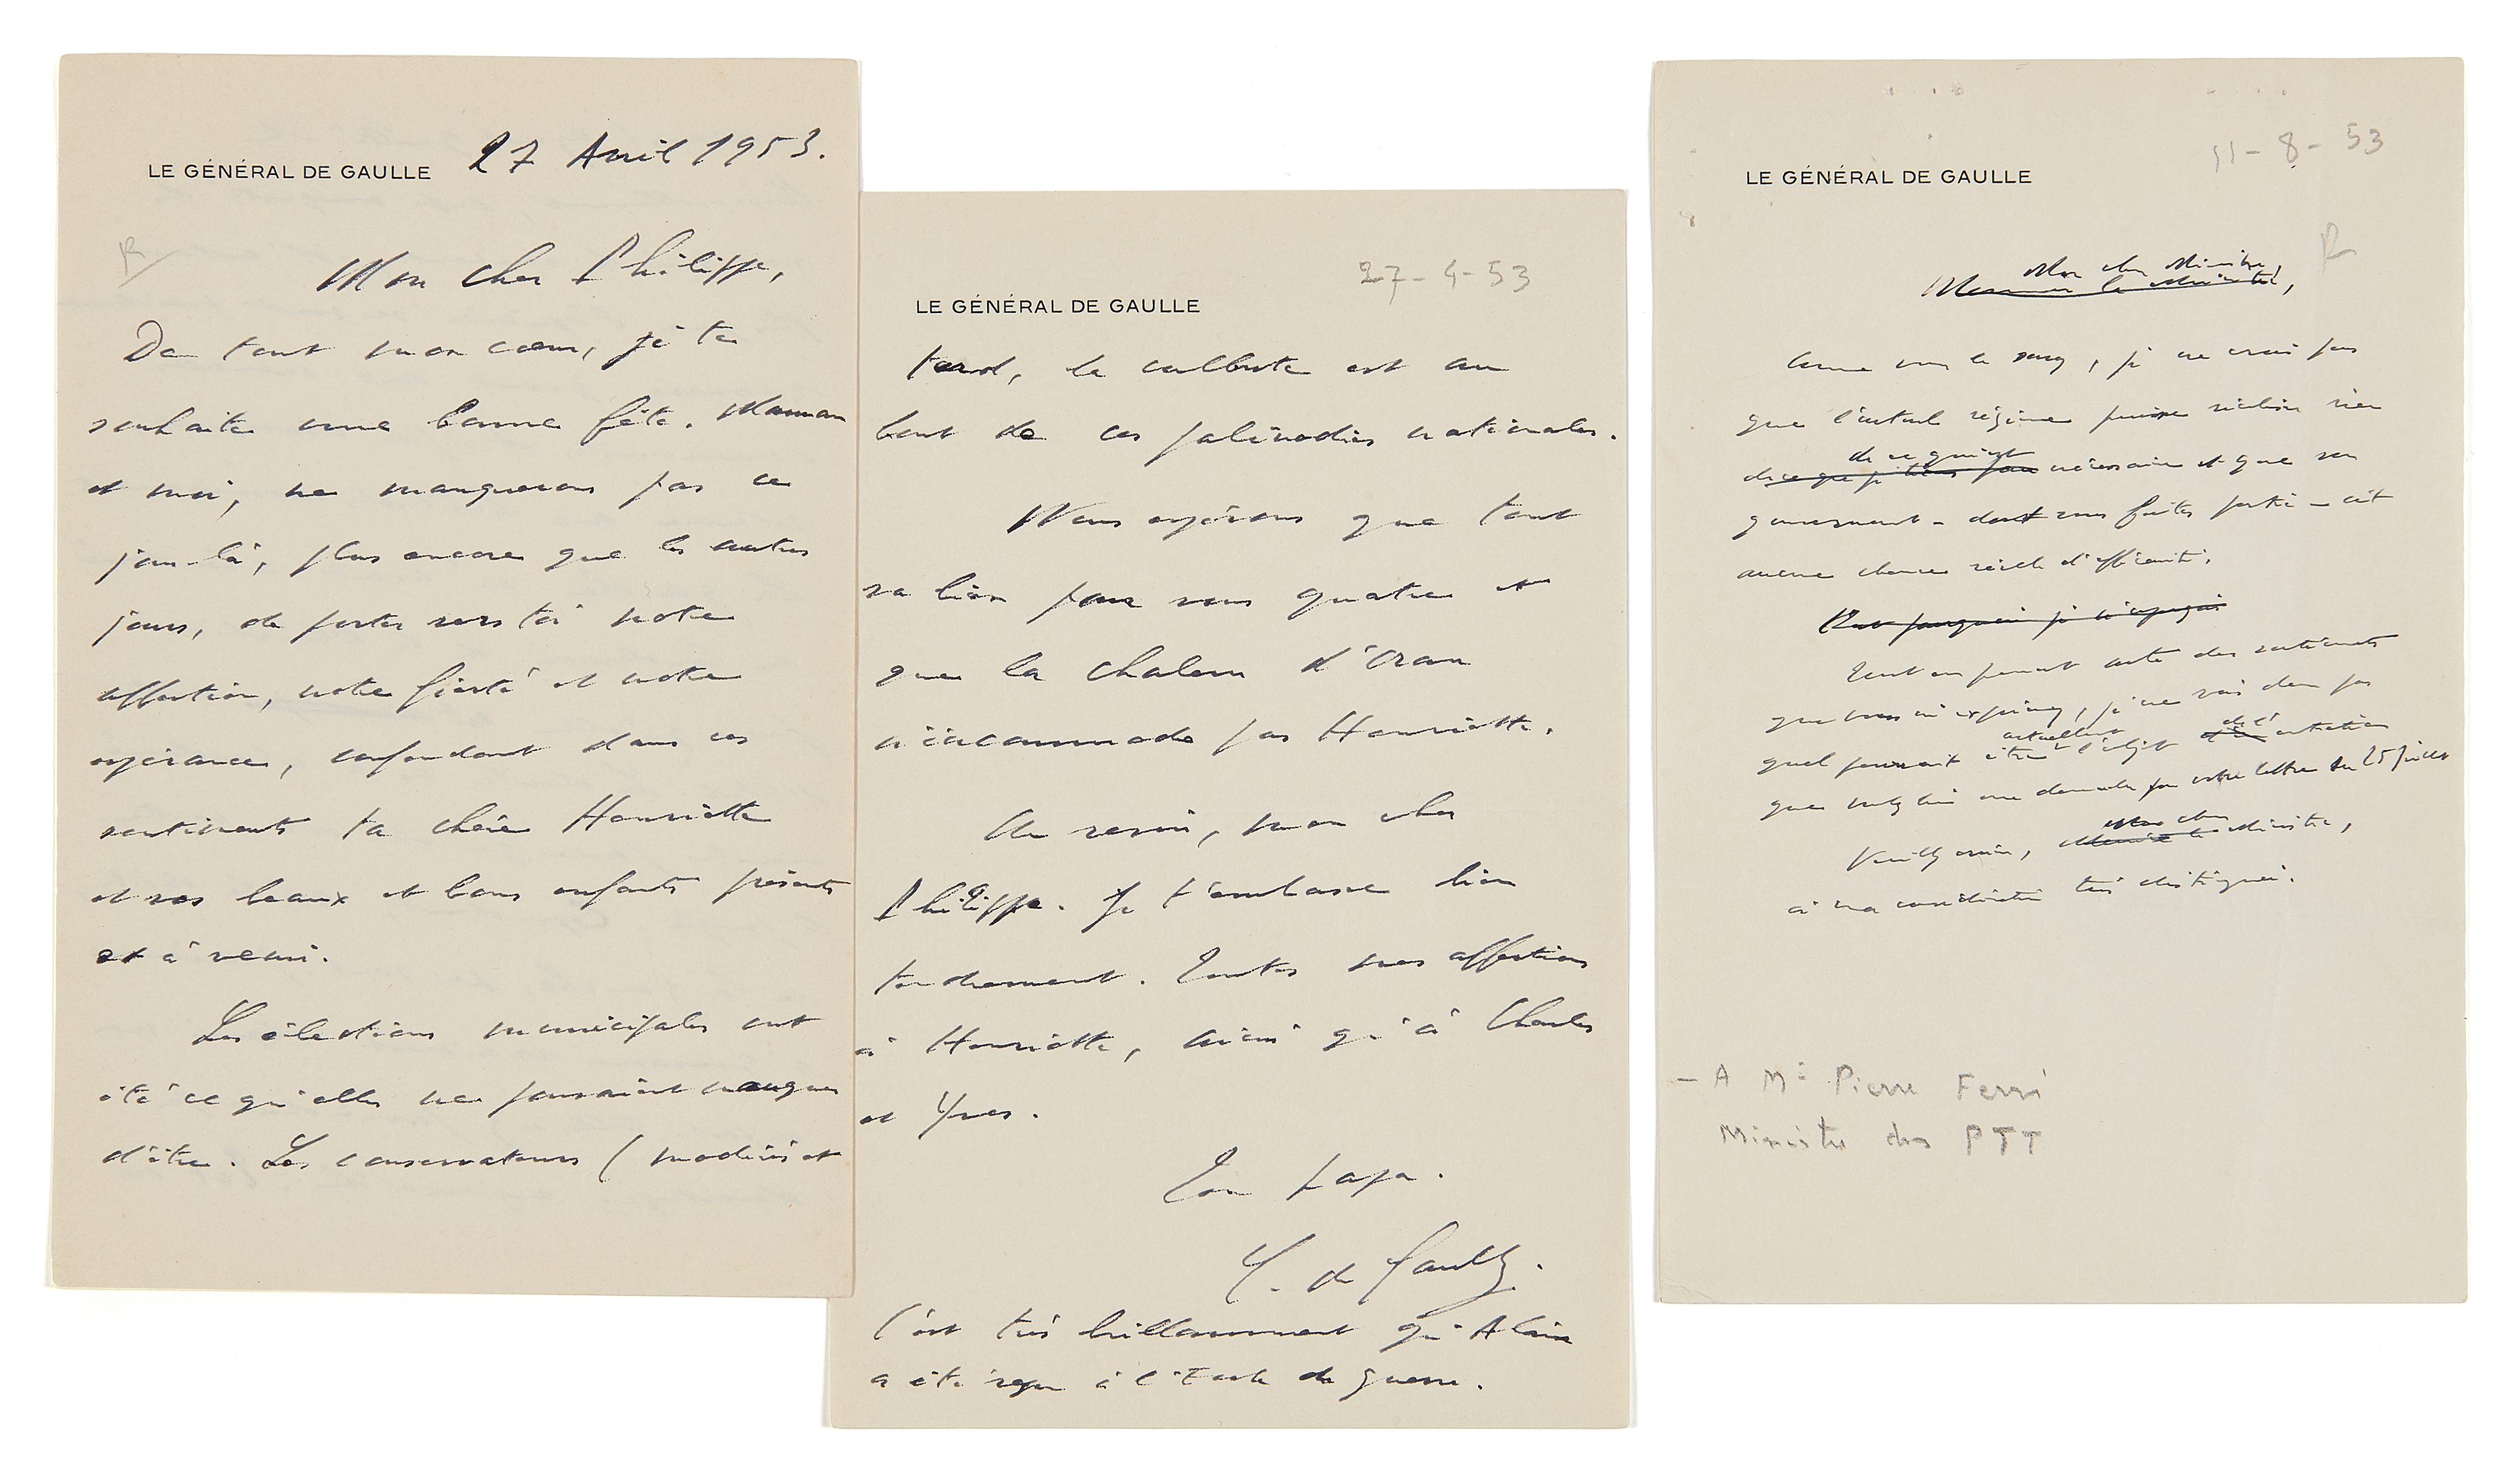 LE GÉNÉRAL DE GAULLE 27 Avril 1953.
Mon cher Philippe,
De tout mon cœur, je te
souhaite une bonne fête. Maman
et moi, ne manquerons pas ce
jour-là, plus encore que les autres
jours, de porter vers toi notre
affection, notre fierté et notre
espérance, confondant dans ces
sentiments ta chère Henriette
et vos beaux et bons enfants présents
et à venir.
Les élections municipales ont
été ce qu'elles ne pouvaient manquer
d'être. Les conservateurs (modérés et
27-4-53
LE GÉNÉRAL DE GAULLE
tard, la culbute est au
bout de ces palinodies nationales.
Nous espérons que tout
va bien pour vous quatre et
que la chaleur d'Oran
n'incommode pas Henriette.
Au revoir, mon cher
Philippe. Je t'embrasse bien
tendrement. Toutes nos affections
à Henriette, ainsi qu'à Charles
et Yves.
Ton papa.
C. de Gaulle.
C'est très brillamment qu'Alain
a été reçu à l'Ecole de guerre.
11-8-53
LE GÉNÉRAL DE GAULLE
Mon cher Ministre,
Monsieur le Ministre,
Comme vous le savez, je ne crois pas
que l'actuel régime puisse réaliser rien
de ce qui est
de ce que je tiens pour nécessaire et que son
gouvernement - dont vous faites partie - ait
aucune chance réelle d'efficacité.
C'est pourquoi je n'aperçois
Tout en prenant acte des sentiments
que vous m'exprimez, je ne vois donc pas
actuellement de l'
quel pourrait être l'objet entretien
que vous demandez par votre lettre du 25 juillet
Mon cher
Veuillez croire, Monsieur le Ministre,
à ma considération très distinguée.
- A Mr Pierre Ferri
Ministre des PTT